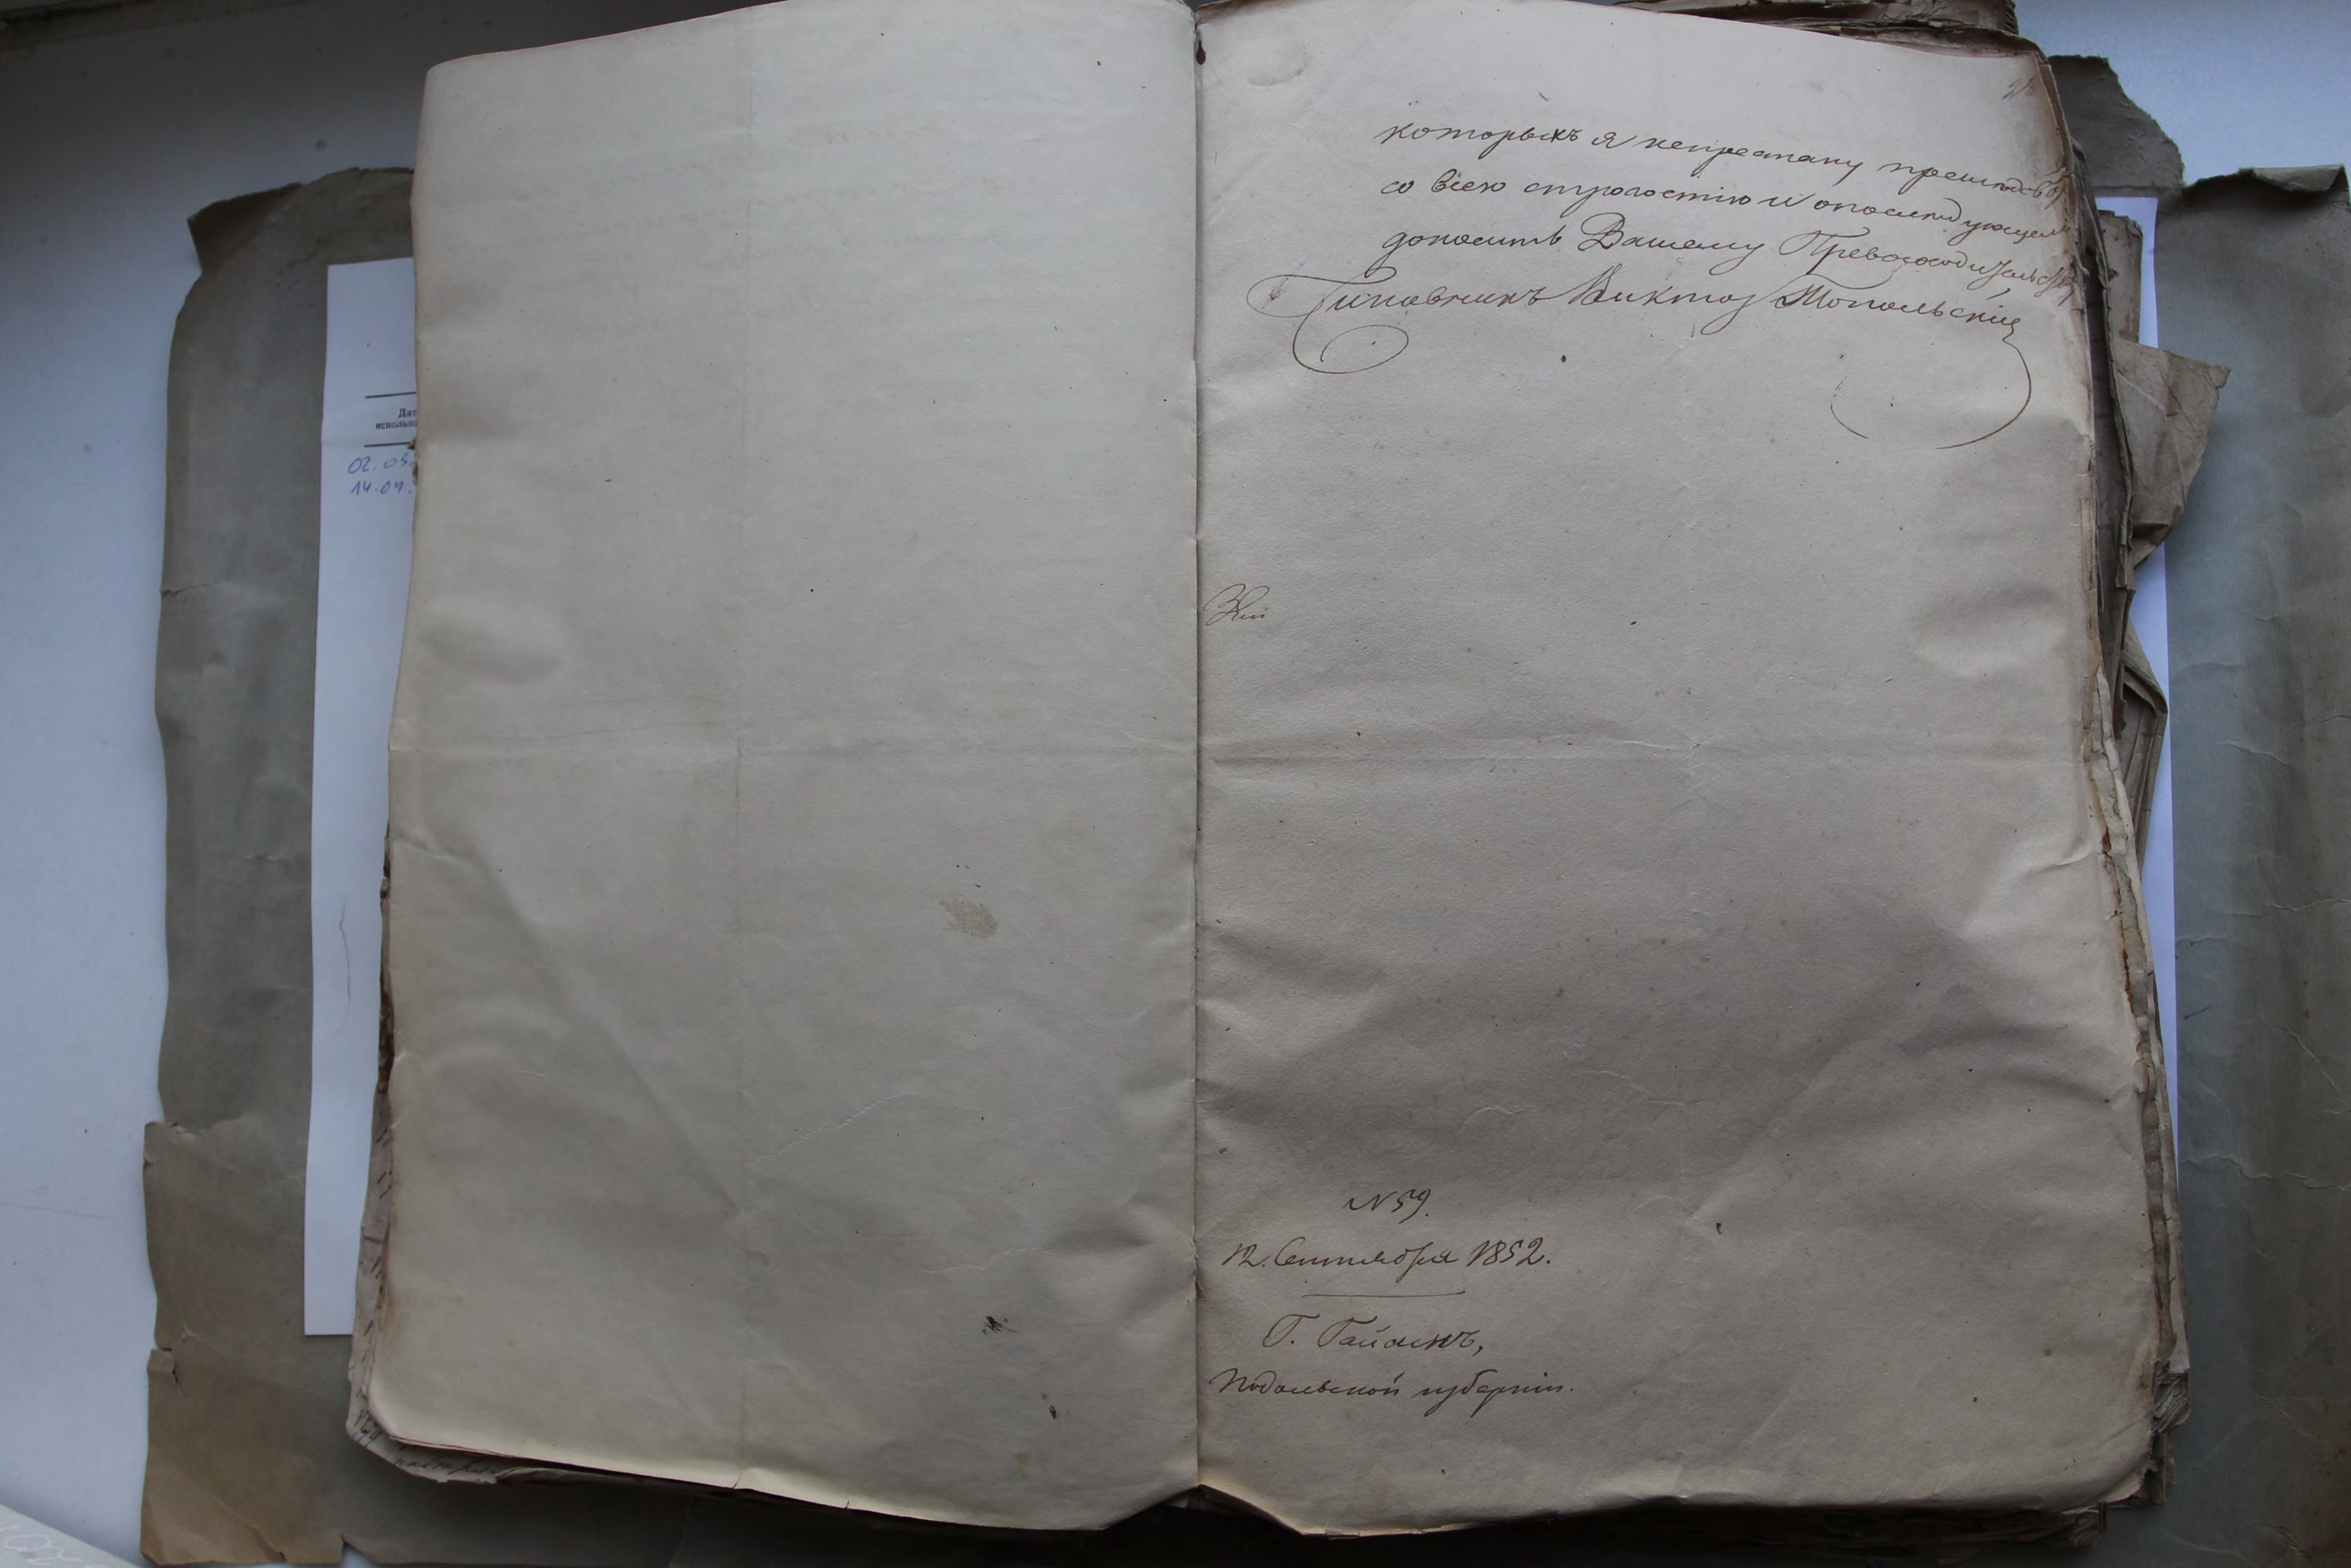 Дат
использо
02.03.
14.04.
которыхъ я непрестану преслѣдов
со всею строгостію и опослѣдующемъ
доносить Вашему Превосходительству
Чиновникъ Викторъ Топольскій
N 59.
12. Сентября 1852.
Г. Гайсинъ,
Подольской губерніи.